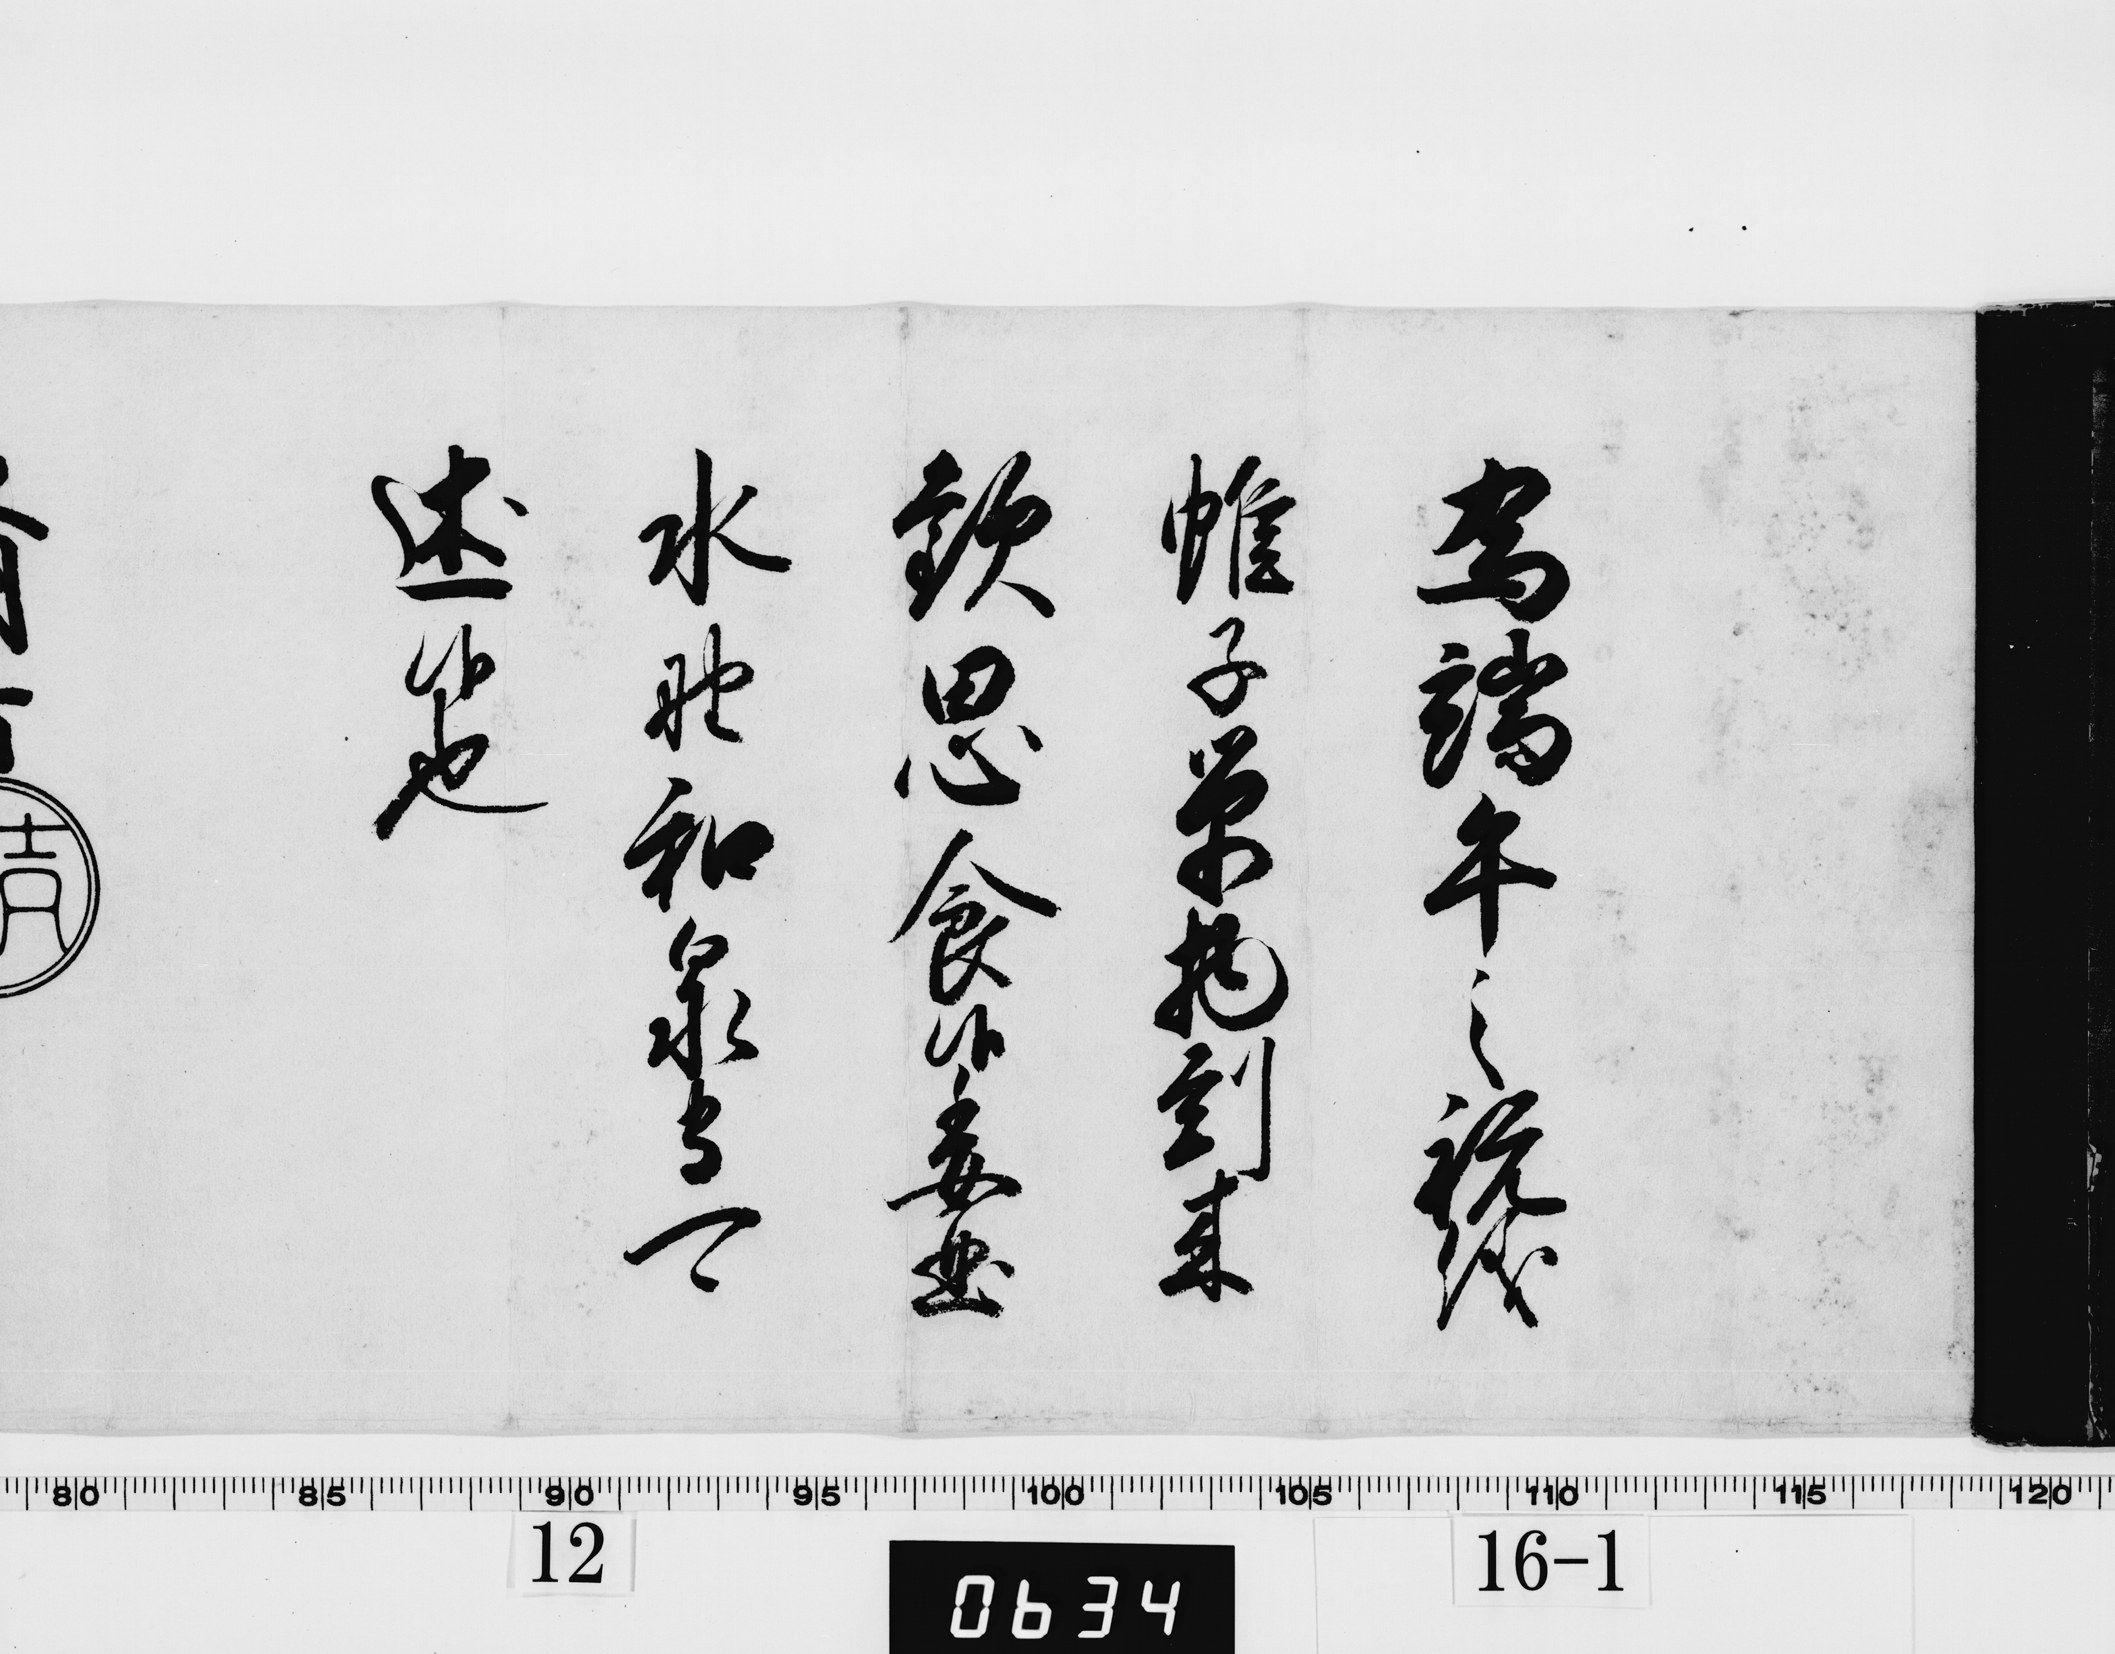 為端午之祝儀
帷子單物到来
歓思食候委曲
水野和泉守可
述候也
80 85 90 95 100 105 110 115 120
12
16-1
0634